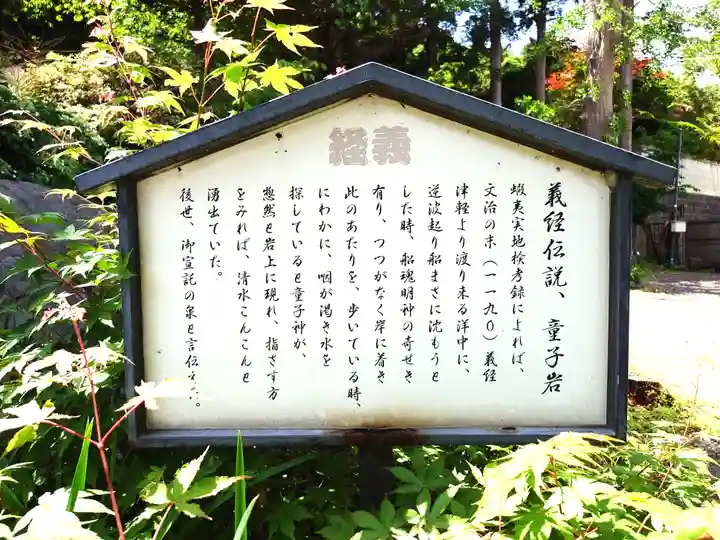 義経
義経伝説、童子岩
蝦夷実地検考録によれば、
文治の末（一一九〇）義経
津軽より渡り来る洋中に、
逆波起り船まさに沈もうと
した時、船魂明神の奇せき
有り、つつがなく岸に着き
此のあたりを、歩いている時、
にわかに、咽が渇き水を
探していると童子神が、
惣然と岩上に現れ、指さす方
をみれば、清水こんこんと
湧出ていた。
後世、御宣託の泉と言伝え